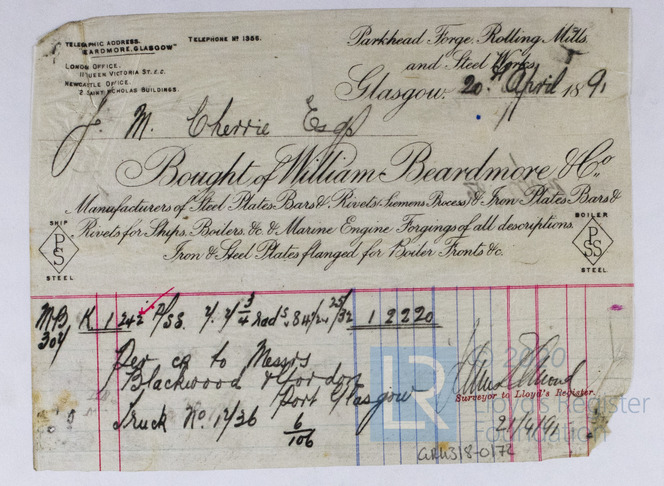 TELEGRAPHIC ADDRESS.
"BEARDMORE, GLASGOW"
TELEPHONE No 1356.
LONDON OFFICE.
QUEEN VICTORIA ST. E.C.
NEWCASTLE OFFICE.
2 SAINT NICHOLAS BUILDINGS.
Parkhead Forge. Rolling Mills.
and Steel Works,
Glasgow. 20 April 1891
J. M. Cherrie Esq
Bought of William Beardmore & Co.
Manufacturers of Steel Plates Bars & Rivets (Siemens Process) & Iron Plates Bars &
Rivets for Ships. Boilers. &c. & Marine Engine Forgings of all descriptions.
Iron & Steel Plates flanged for Boiler Fronts &c.
SHIP
PS
STEEL
BOILER
PSS
STEEL
M.B. K 1 242 PSS. 25/32 1 2220
Per CR to Messrs
Blackwood & Gordon
Port Glasgow
Truck No.
6/106
Surveyor to Lloyd's Register.
21/4/91
LR
© 2020
Lloyd's Register
Foundation